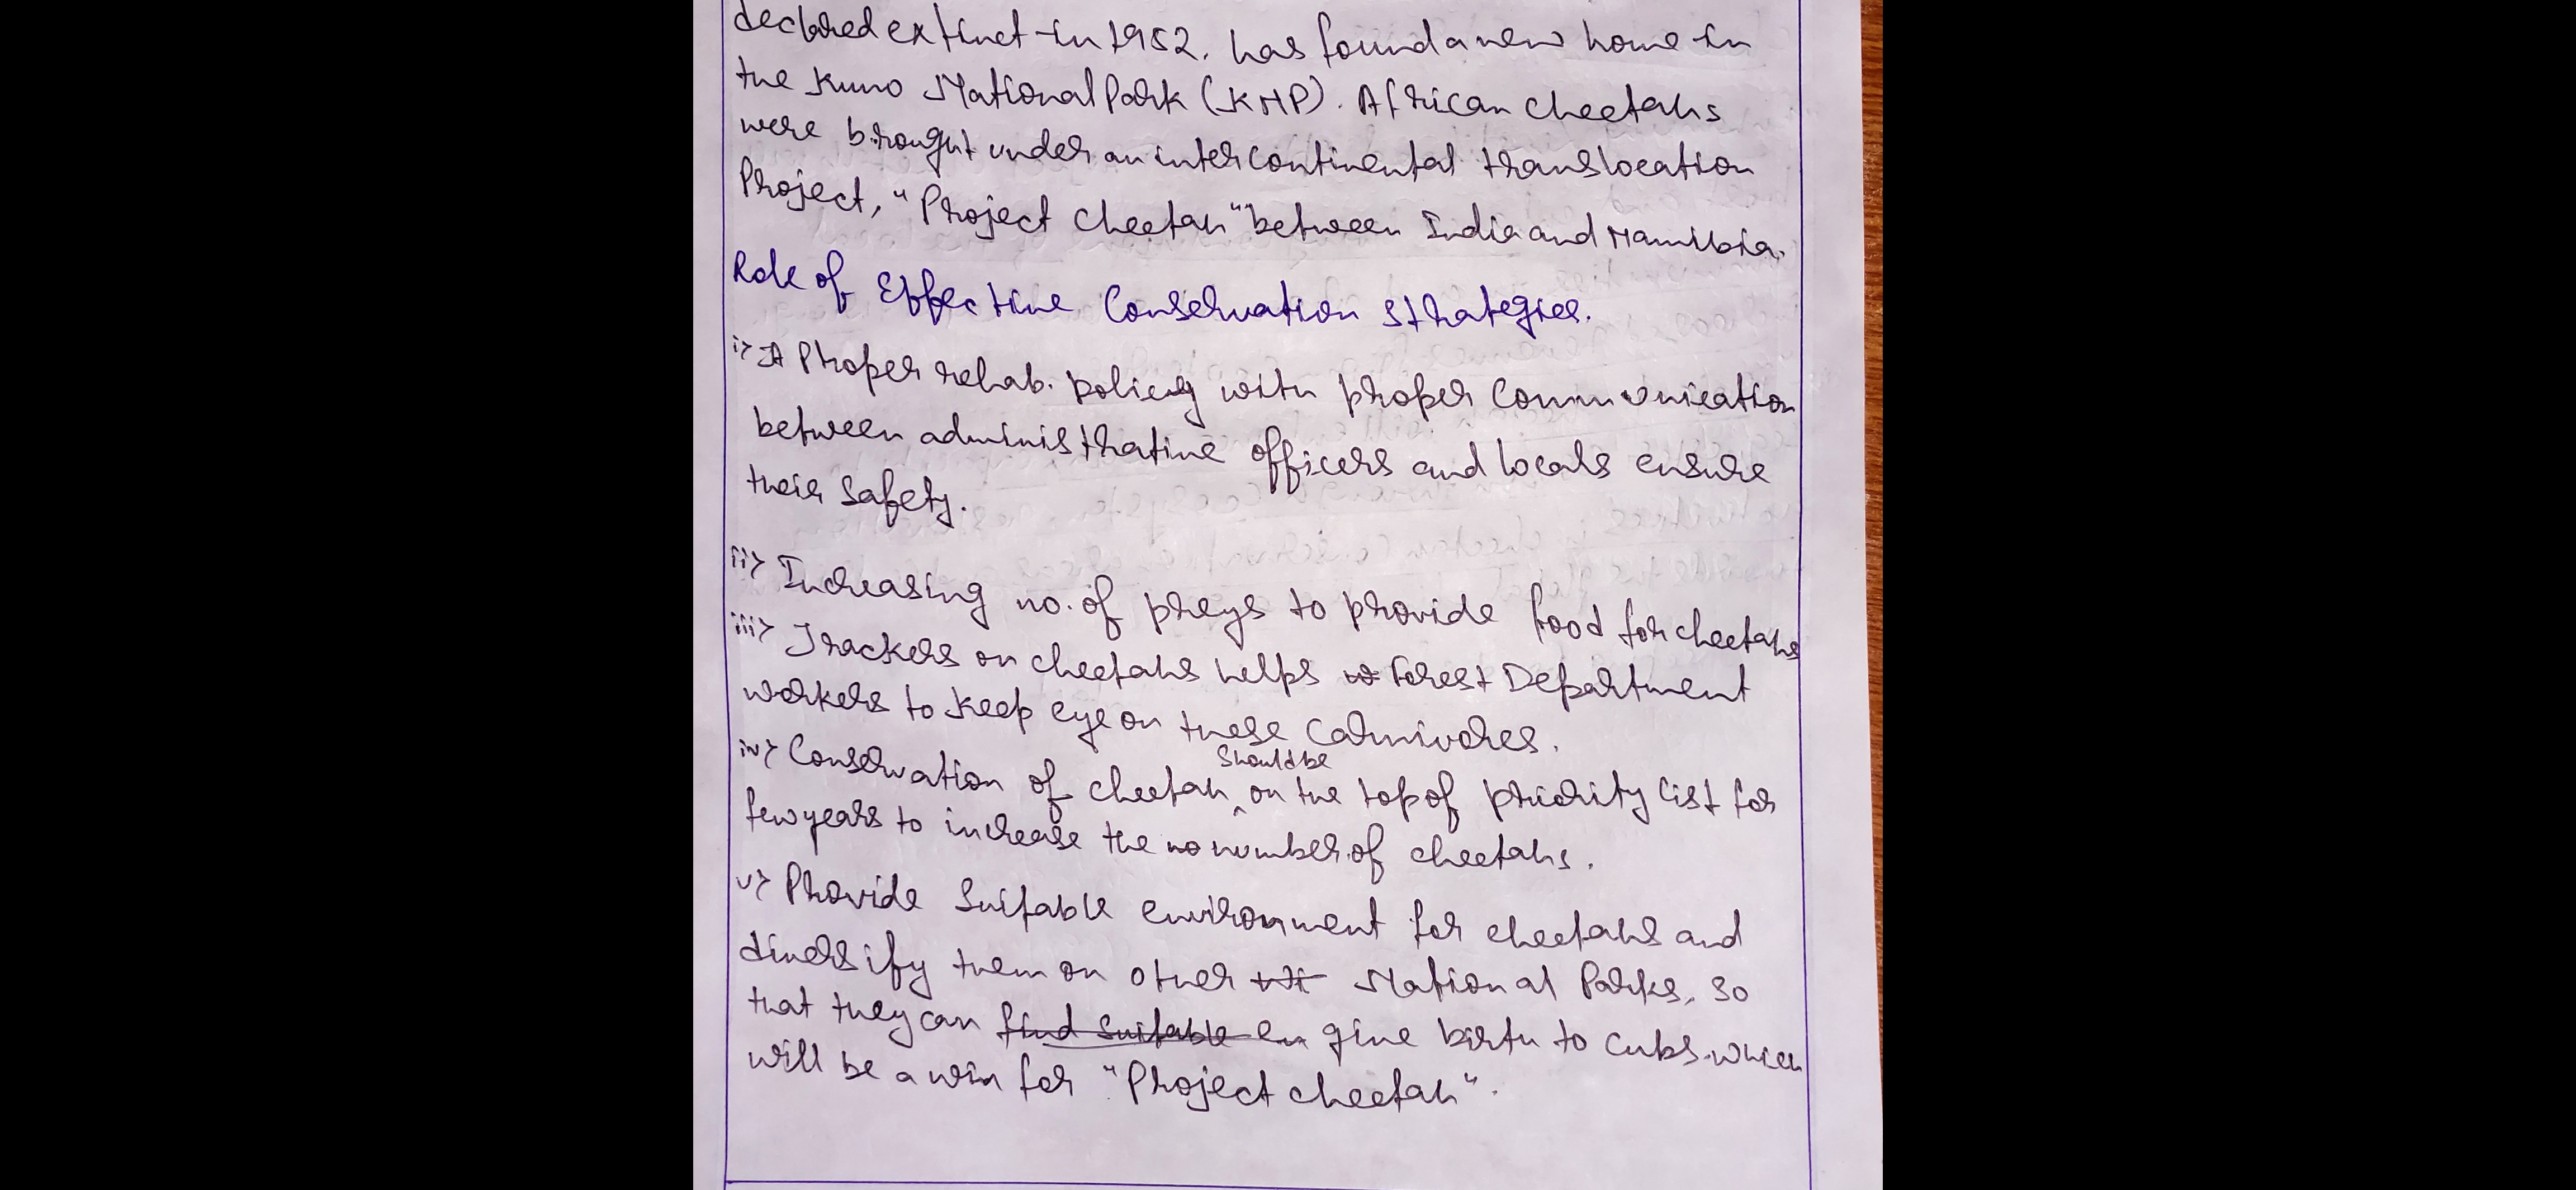 declared extinct in 1952, has found a new home in
the Kuno National Park (KNP). African cheetahs
were brought under an intercontinental translocation
Project, "Project Cheetah" between India and Namibia.
Role of Effective Conservation strategies.
i> A Proper rehab. policy with proper communication
between administrative officers and locals ensure
their safety.
ii> Increasing no. of preys to provide food for cheetahs
iii> Trackers on cheetahs helps to Forest Department
workers to keep eye on these carnivores.
iv> Conservation of cheetah should be on the top of priority list for
few years to increase the no number of cheetahs.
v> Provide Suitable environment for cheetahs and
diversify them on other National Parks, so
that they can find suitable en give birth to cubs which
will be a win for "Project cheetah".